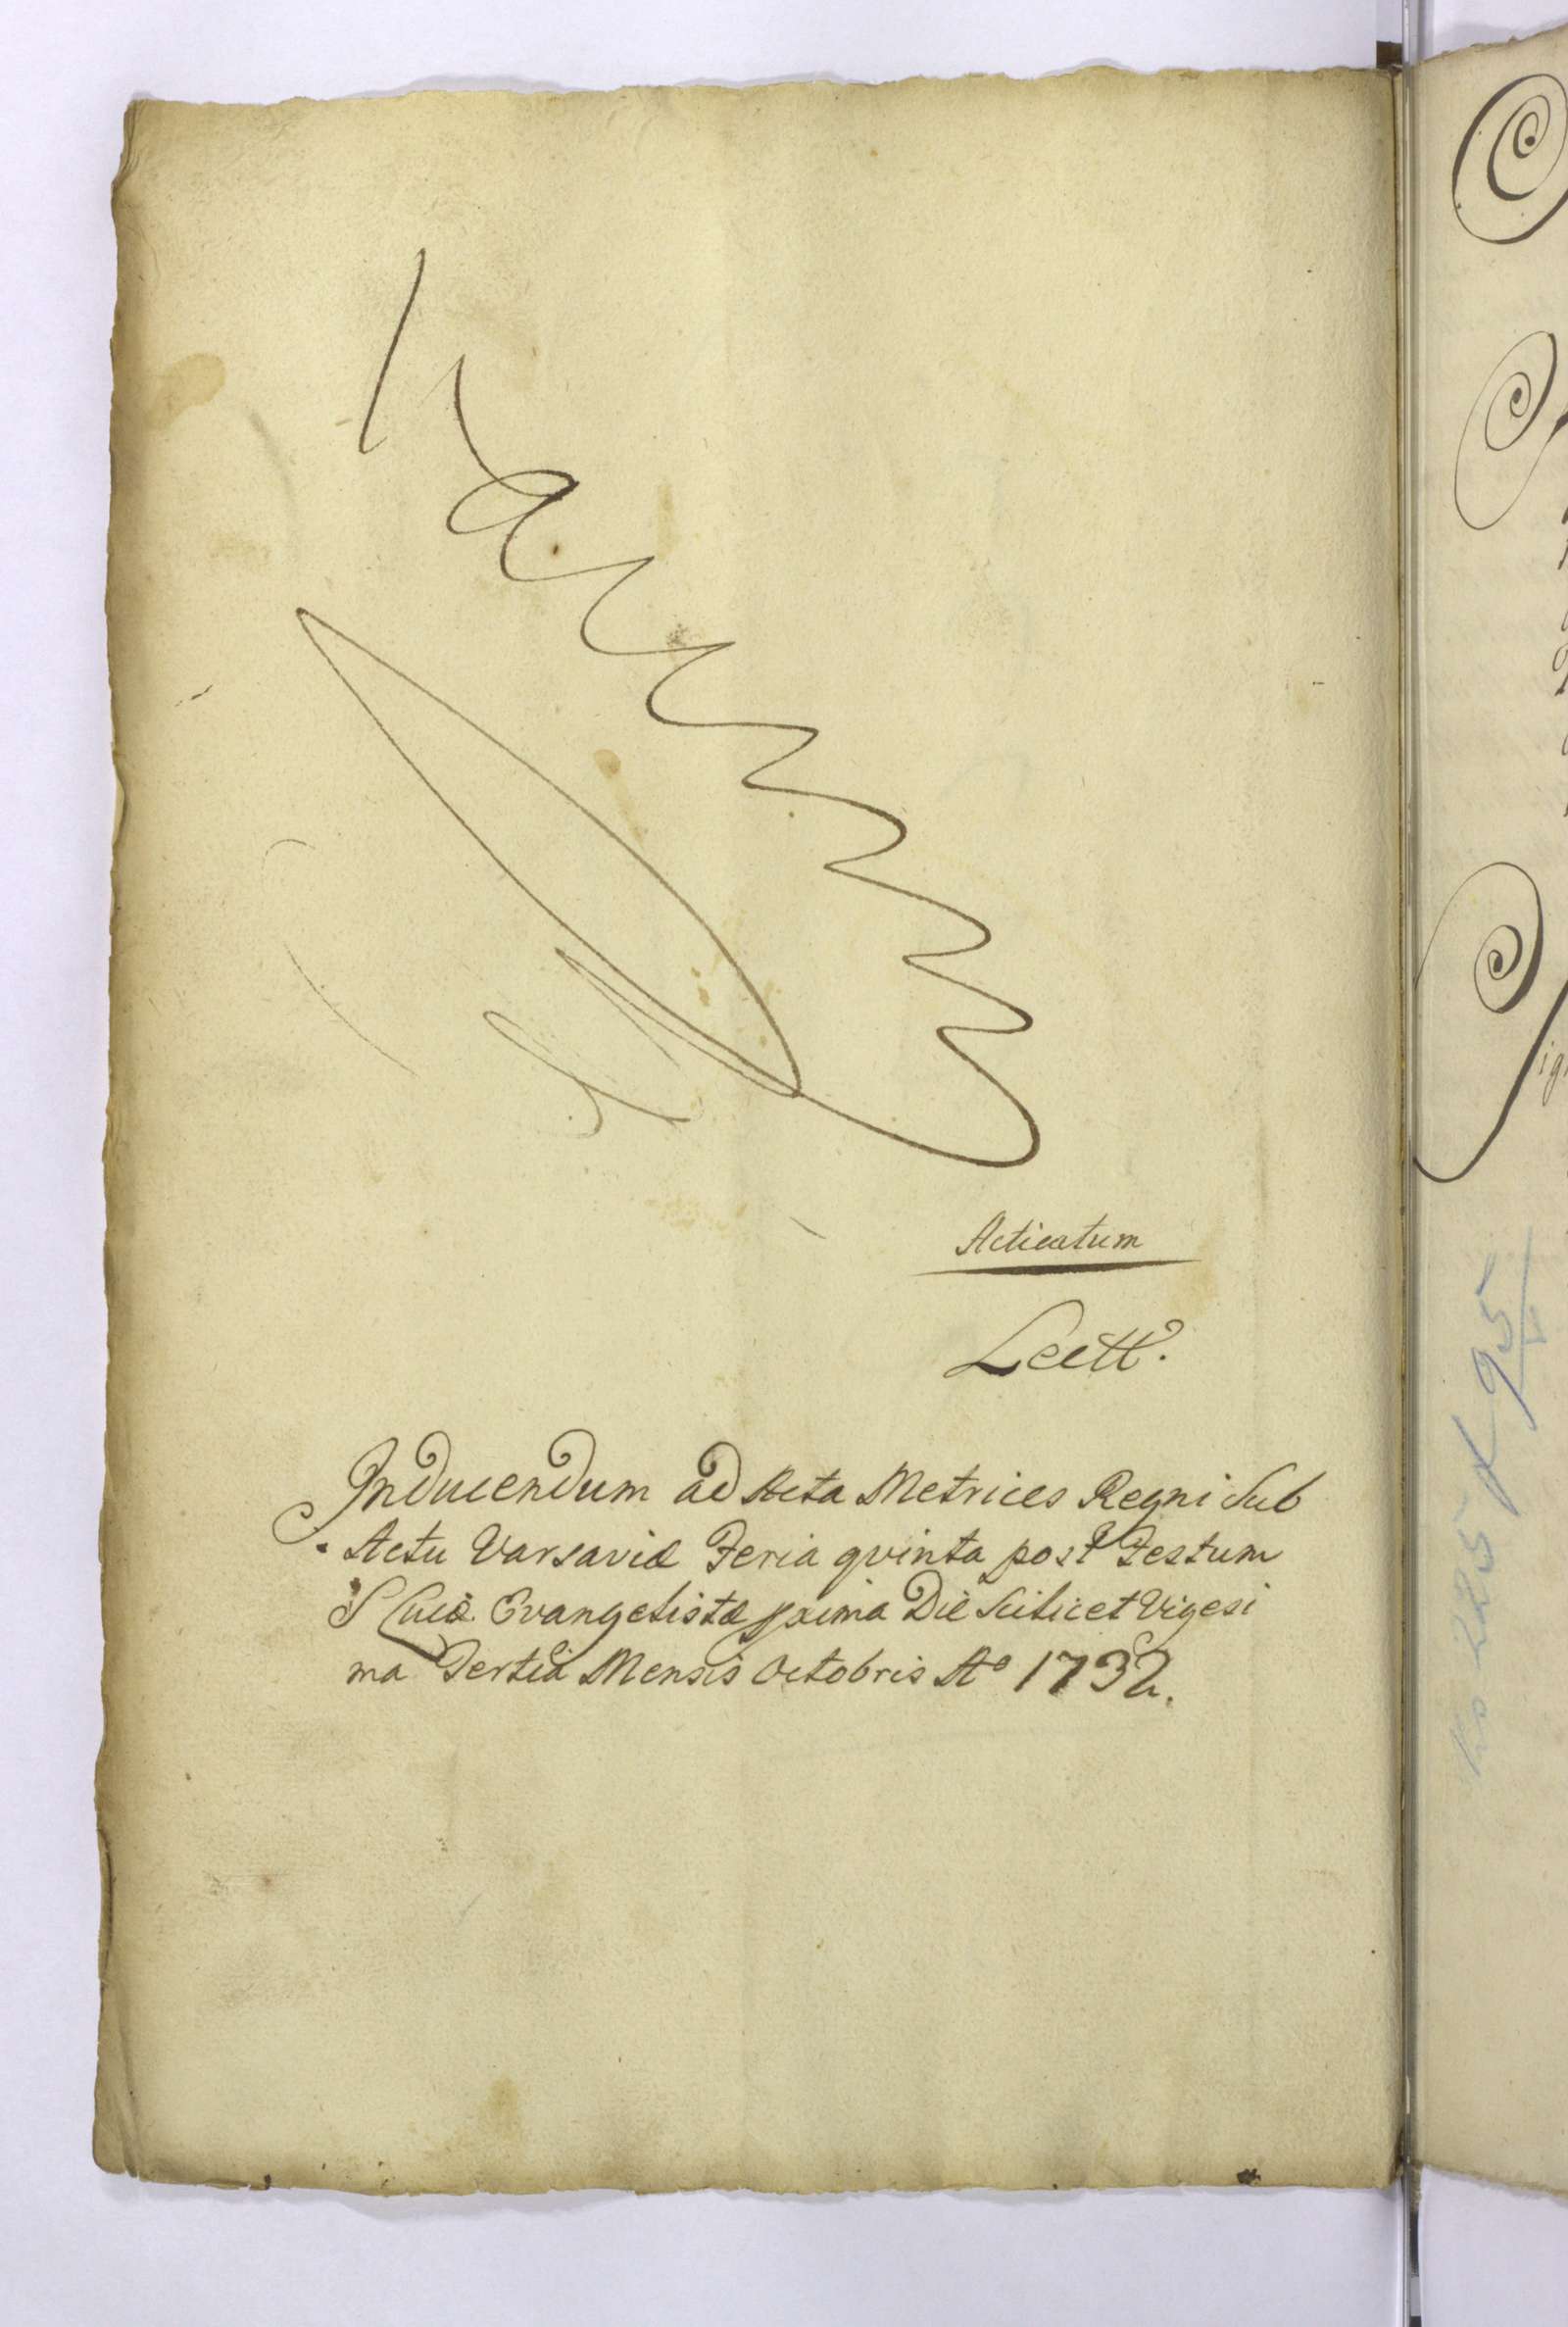 Acticatum
Lectt.
Inducendum ad Acta Metrices Regni Sub
Actu Varsaviæ Feria qvinta post Festum
S Lucæ Evangelistæ pxima Die Scilicet Vigesi
ma Tertia Mensis Octobris Aº 1732.